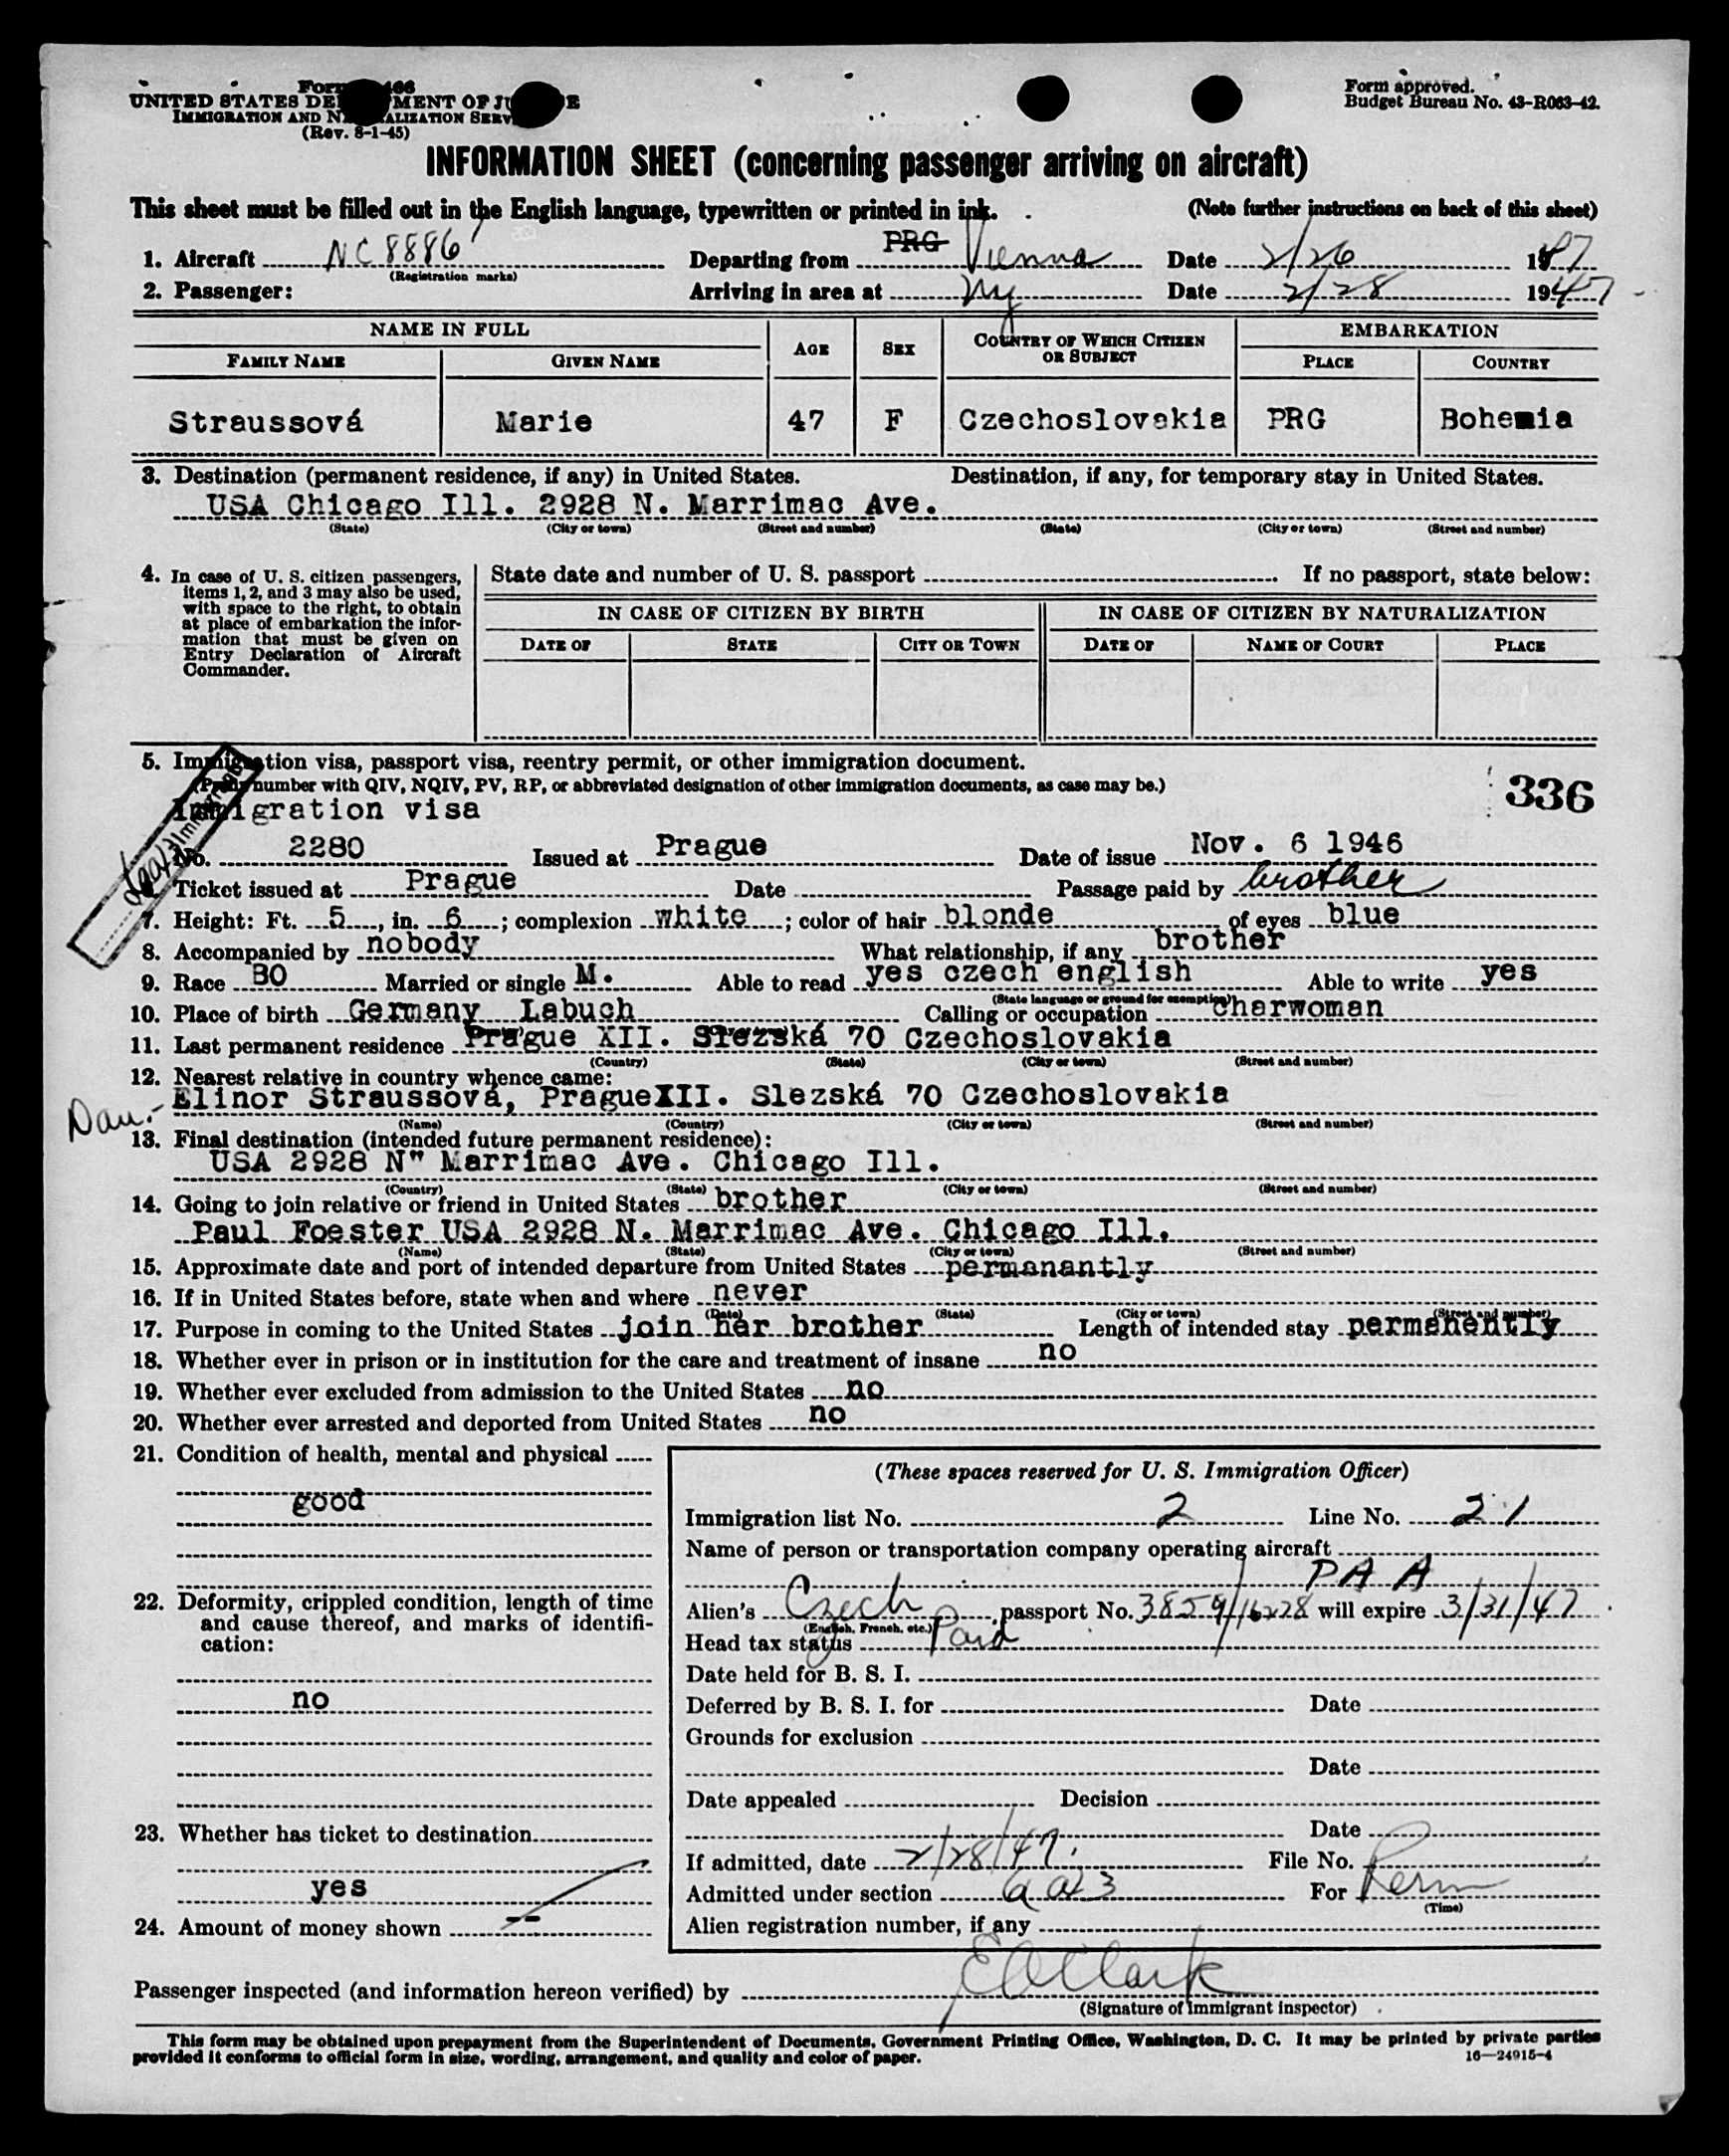 Form 466
UNITED STATES DEPARTMENT OF JUSTICE
IMMIGRATION AND NATURALIZATION SERVICE
(Rev. 8-1-45)
Form approved.
Budget Bureau No. 43-R063-42.
INFORMATION SHEET (concerning passenger arriving on aircraft)
This sheet must be filled out in the English language, typewritten or printed in ink. (Note further instructions on back of this sheet)
1. Aircraft NC 8886 Departing from PRG Vienna Date 2/26 1947
(Registration marks)
2. Passenger: Arriving in area at NY Date 2/28 1947
NAME IN FULL AGE SEX COUNTRY OF WHICH CITIZEN OR SUBJECT EMBARKATION
FAMILY NAME GIVEN NAME PLACE COUNTRY
Straussová Marie 47 F Czechoslovakia PRG Bohemia
3. Destination (permanent residence, if any) in United States. Destination, if any, for temporary stay in United States.
USA Chicago Ill. 2928 N. Marrimac Ave.
(State) (City or town) (Street and number) (State) (City or town) (Street and number)
4. In case of U. S. citizen passengers, items 1, 2, and 3 may also be used, with space to the right, to obtain at place of embarkation the information that must be given on Entry Declaration of Aircraft Commander.
State date and number of U. S. passport If no passport, state below:
IN CASE OF CITIZEN BY BIRTH IN CASE OF CITIZEN BY NATURALIZATION
DATE OF STATE CITY OR TOWN DATE OF NAME OF COURT PLACE
5. Immigration visa, passport visa, reentry permit, or other immigration document.
(Prefix number with QIV, NQIV, PV, RP, or abbreviated designation of other immigration documents, as case may be.)
336
Immigration visa
No. 2280 Issued at Prague Date of issue Nov. 6 1946
6. Ticket issued at Prague Date Passage paid by brother
7. Height: Ft. 5, in. 6; complexion white; color of hair blonde of eyes blue
8. Accompanied by nobody What relationship, if any brother
9. Race BO Married or single M. Able to read yes czech english Able to write yes
(State language or ground for exemption)
10. Place of birth Germany Labuch Calling or occupation charwoman
11. Last permanent residence Prague XII. Slezská 70 Czechoslovakia
(Country) (State) (City or town) (Street and number)
12. Nearest relative in country whence came:
Dau.- Elinor Straussová, PragueXII. Slezská 70 Czechoslovakia
(Name) (Country) (City or town) (Street and number)
13. Final destination (intended future permanent residence):
USA 2928 N" Marrimac Ave. Chicago Ill.
(Country) (State) (City or town) (Street and number)
14. Going to join relative or friend in United States brother
Paul Foester USA 2928 N. Marrimac Ave. Chicago Ill.
(Name) (State) (City or town) (Street and number)
15. Approximate date and port of intended departure from United States permanantly
16. If in United States before, state when and where never
(Date) (State) (City or town) (Street and number)
17. Purpose in coming to the United States join her brother Length of intended stay permenently
18. Whether ever in prison or in institution for the care and treatment of insane no
19. Whether ever excluded from admission to the United States no
20. Whether ever arrested and deported from United States no
21. Condition of health, mental and physical
good
22. Deformity, crippled condition, length of time and cause thereof, and marks of identification:
no
23. Whether has ticket to destination
yes
24. Amount of money shown --
(These spaces reserved for U. S. Immigration Officer)
Immigration list No. 2 Line No. 21
Name of person or transportation company operating aircraft
PAA
Alien's Czech passport No. 3859/16228 will expire 3/31/47
(English, French, etc.)
Head tax status Paid
Date held for B. S. I.
Deferred by B. S. I. for Date
Grounds for exclusion
Date
Date appealed Decision
Date
If admitted, date 2/28/47. File No.
Admitted under section 6a3 For Perm
(Time)
Alien registration number, if any
Passenger inspected (and information hereon verified) by E A Clark
(Signature of immigrant inspector)
This form may be obtained upon prepayment from the Superintendent of Documents, Government Printing Office, Washington, D. C. It may be printed by private parties
provided it conforms to official form in size, wording, arrangement, and quality and color of paper.
16—24915-4